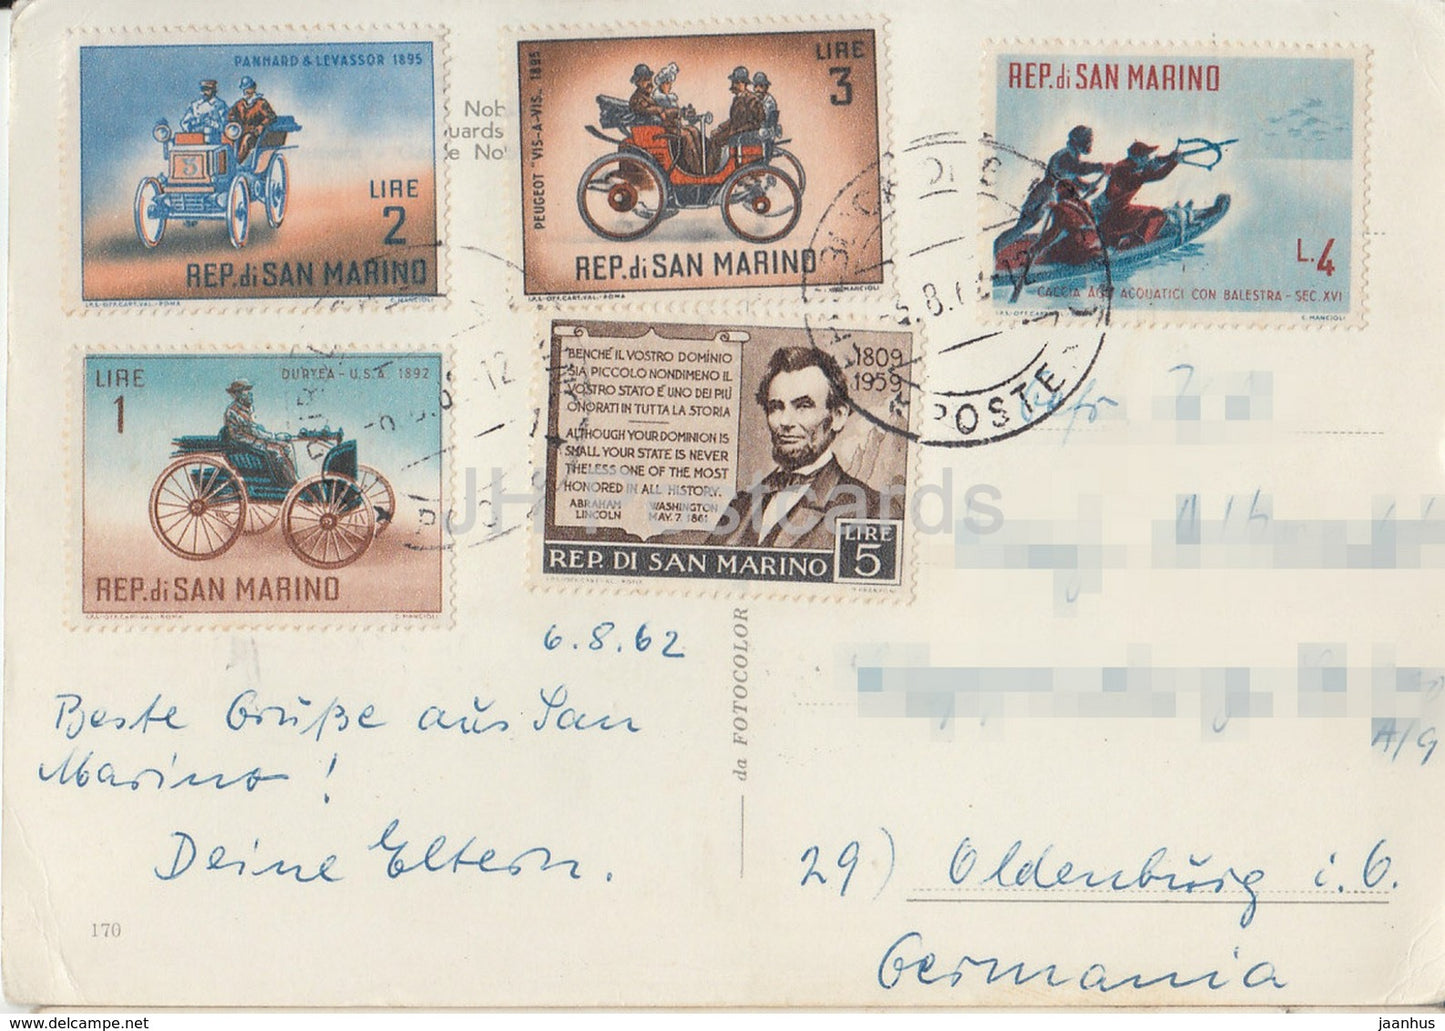 PANHARD & LEVASSOR 1895
LIRE
2
REP. di SAN MARINO
I.P.S.-OFF.CART.VAL.-ROMA
C. MANCIOLI
PEUGEOT "VIS-A-VIS„ 1895
LIRE
3
REP. di SAN MARINO
I.P.S.-OFF.CART.VAL.-ROMA
C. MANCIOLI
REP. di SAN MARINO
L.4
CACCIA AGLI ACQUATICI CON BALESTRA - SEC. XVI
C. MANCIOLI
Nob
uards
e No
LIRE
1
DURYEA - U.S.A. 1892
REP. di SAN MARINO
I.P.S.-OFF.CART.VAL.-ROMA
C. MANCIOLI
1809
1959
BENCHÉ IL VOSTRO DOMINIO
SIA PICCOLO NONDIMENO IL
VOSTRO STATO È UNO DEI PIÙ
ONORATI IN TUTTA LA STORIA
ALTHOUGH YOUR DOMINION IS
SMALL YOUR STATE IS NEVER
THELESS ONE OF THE MOST
HONORED IN ALL HISTORY.
ABRAHAM LINCOLN
WASHINGTON MAY. 7. 1861
REP. DI SAN MARINO
LIRE
5
POSTE
JH Postcards
6.8.62
Beste Grüße aus San
Marino!
Deine Eltern.
170
da FOTOCOLOR
A/9
29) Oldenburg i. O.
Germania
delcampe.net
jaanhus